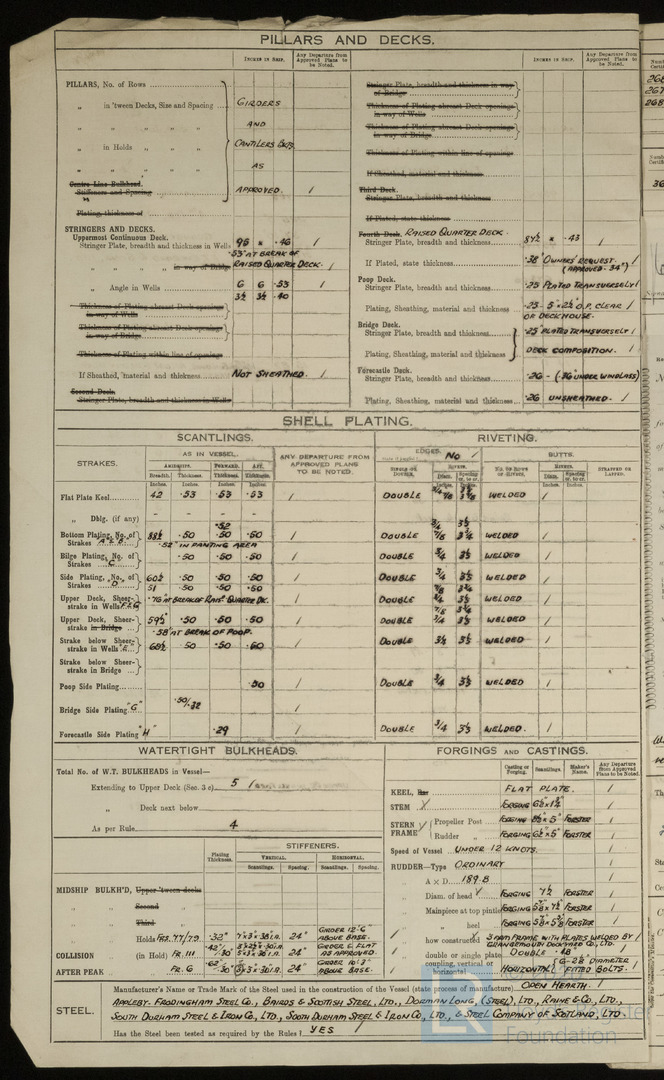 PILLARS AND DECKS.
INCHES IN SHIP.
Any Departure from Approved Plans to be Noted.
PILLARS, No. of Rows
„ in 'tween Decks, Size and Spacing
GIRDERS
„ „ „ „
AND
„ in Holds „ „
CANTILERS
„ „ „ „
AS
Centre Line Bulkhead.
Stiffeners and Spacing
APPROVED. /
Plating, thickness of
STRINGERS AND DECKS.
Uppermost Continuous Deck.
Stringer Plate, breadth and thickness in Wells
95 × .46 /
.53 AT BREAK OF
„ „ „ „ in way of Bridge
RAISED QUARTER DECK. /
„ Angle in Wells
6 6 .53 /
3½ 3½ .40
Thickness of Plating abreast Deck openings in way of Wells
Thickness of Plating abreast Deck openings in way of Bridge
Thickness of Plating within line of openings
If Sheathed, material and thickness
NOT SHEATHED. /
Second Deck.
Stringer Plate, breadth and thickness in Wells
INCHES IN SHIP.
Any Departure from Approved Plans to be Noted.
Stringer Plate, breadth and thickness in way of Bridge
Thickness of Plating abreast Deck openings in way of Wells
Thickness of Plating abreast Deck openings in way of Bridge
Thickness of Plating within line of openings
If Sheathed, material and thickness
Third Deck.
Stringer Plate, breadth and thickness
If Plated, state thickness
Fourth Deck. RAISED QUARTER DECK.
Stringer Plate, breadth and thickness
84½ × .43 /
If Plated, state thickness
.38 OWNERS' REQUEST. /
(APPROVED .34")
Poop Deck.
Stringer Plate, breadth and thickness
.25 PLATED TRANSVERSELY /
Plating, Sheathing, material and thickness
.25 - 5"×2½" O.P. CLEAR /
OF DECKHOUSE.
Bridge Deck.
Stringer Plate, breadth and thickness
.25" PLATED TRANSVERSELY /
Plating, Sheathing, material and thickness
DECK COMPOSITION. /
Forecastle Deck.
Stringer Plate, breadth and thickness
.26 - (.36 UNDER WINDLASS) /
Plating, Sheathing, material and thickness
.26 UNSHEATHED. /
SHELL PLATING.
SCANTLINGS.
RIVETING.
STRAKES.
AS IN VESSEL.
AMIDSHIPS. FORWARD. AFT.
Breadth. Thickness. Thickness. Thickness.
Inches. Inches. Inches. Inches.
ANY DEPARTURE FROM APPROVED PLANS TO BE NOTED.
EDGES. No /
SINGLE OR DOUBLE.
RIVETS.
Diam. Spacing cr. to cr.
BUTTS.
NO. OF ROWS OF RIVETS.
RIVETS.
Diam. Spacing cr. to cr.
STRAPPED OR LAPPED.
Flat Plate Keel 42 .53 .53 .53 / DOUBLE WELDED /
„ Dblg. (if any) - - - -
.52
Bottom Plating, No. of Strakes 88½ .50 .50 .50 / DOUBLE WELDED /
.52 IN PANTING AREA
Bilge Plating, No. of Strakes C .50 .50 .50 / DOUBLE ¾ 3½ WELDED /
Side Plating, No. of Strakes D 60½ .50 .50 .50 / DOUBLE ¾ 3½ WELDED /
51 .50 .50 .50
Upper Deck, Sheer-strake in Wells .76 AT BREAK OF RAIS'D QUARTER DK. / DOUBLE WELDED /
Upper Deck, Sheer-strake in Bridge 59½ .50 .50 .50 / DOUBLE WELDED /
.58 AT BREAK OF POOP.
Strake below Sheer-strake in Wells E 68½ .50 .50 .50 / DOUBLE ¾ 3½ WELDED /
Strake below Sheer-strake in Bridge
Poop Side Plating .30 / DOUBLE ¾ 3½ WELDED /
Bridge Side Plating "G" .50/.32 /
Forecastle Side Plating "H" .29 / DOUBLE ¾ 3½ WELDED. /
WATERTIGHT BULKHEADS.
Total No. of W.T. BULKHEADS in Vessel—
Extending to Upper Deck (Sec. 3 c) 5
„ Deck next below
As per Rule 4
Plating Thickness.
STIFFENERS.
VERTICAL. HORIZONTAL.
Scantlings. Spacing. Scantlings. Spacing.
MIDSHIP BULKH'D, Upper 'tween decks
„ Second „
„ Third „
„ Holds FRS. 47/79 .32" 24" GIRDER 12'-6" ABOVE BASE.
COLLISION „ (in Hold) FR. 111 24" GIRDER & FLAT AS APPROVED.
AFTER PEAK „ FR. 6 24" GIRDER ABOVE BASE.
FORGINGS AND CASTINGS.
Casting or Forging. Scantlings. Maker's Name. Any Departure from Approved Plans to be Noted.
KEEL, Bar FLAT PLATE. /
STEM FORGING 6½"×1¾" /
STERN FRAME
Propeller Post FORGING 8½"×5" FORSTER /
Rudder „ FORGING 6½"×5" FORSTER /
Speed of Vessel UNDER 12 KNOTS. /
RUDDER—Type ORDINARY /
„ A × D 189.8 /
„ Diam. of head FORGING 7½ FORSTER /
„ Mainpiece at top pintle FORGING FORSTER /
„ „ heel FORGING FORSTER /
„ how constructed 3 PART FRAME WITH PLATES WELDED BY GRANGEMOUTH DOCKYARD CO., LTD. /
„ double or single plate DOUBLE .48" /
„ coupling, vertical or horizontal HORIZONTAL (6-2⅛ DIAMETER FITTED BOLTS. /
STEEL.
Manufacturer's Name or Trade Mark of the Steel used in the construction of the Vessel (state process of manufacture) OPEN HEARTH.
APPLEBY-FRODINGHAM STEEL CO., BAIRDS & SCOTTISH STEEL, LTD., DORMAN LONG, (STEEL), LTD., RAINE & CO., LTD.,
SOUTH DURHAM STEEL & IRON CO., LTD., SOUTH DURHAM STEEL & IRON CO., LTD., & STEEL COMPANY OF SCOTLAND, LTD.
Has the Steel been tested as required by the Rules? YES.
Foundation